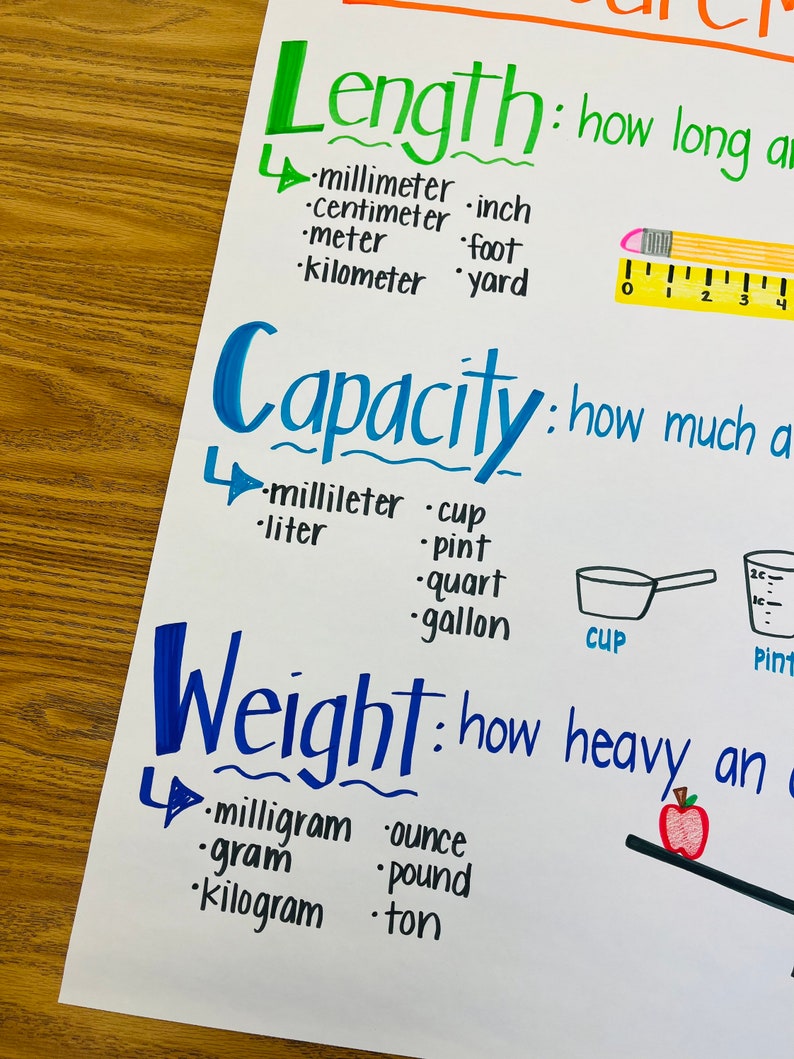 Length: how long
• millimeter
• centimeter
• meter
• kilometer
• inch
• foot
• yard
0 1 2 3 4
Capacity: how much a
• millileter
• liter
• cup
• pint
• quart
• gallon
2c
1c
cup
pint
Weight: how heavy an
• milligram
• gram
• kilogram
• ounce
• pound
• ton